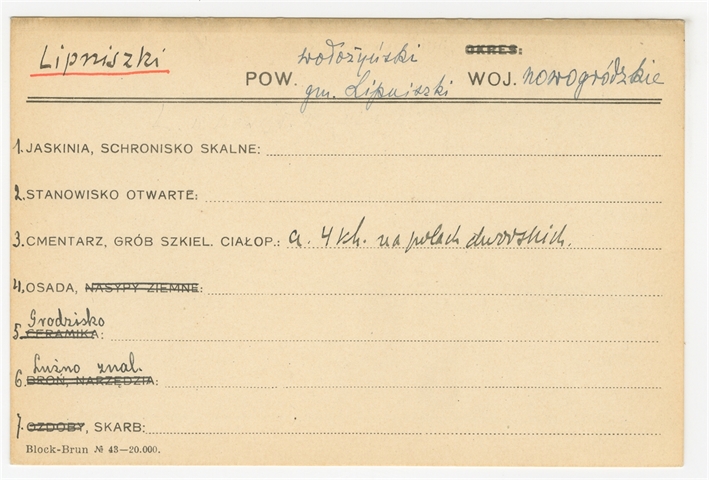 Lipniszki
OKRES:
POW. wołożyński WOJ. nowogródzkie
gm. Lipniszki
1. JASKINIA, SCHRONISKO SKALNE:
2. STANOWISKO OTWARTE:
3. CMENTARZ, GRÓB SZKIEL. CIAŁOP.: a. 4 kh. na polach dworskich.
4. OSADA, NASYPY ZIEMNE:
Grodzisko
5. CERAMIKA:
Luźno znal.
6. BROŃ, NARZĘDZIA:
7. OZDOBY, SKARB:
Block-Brun № 43—20.000.